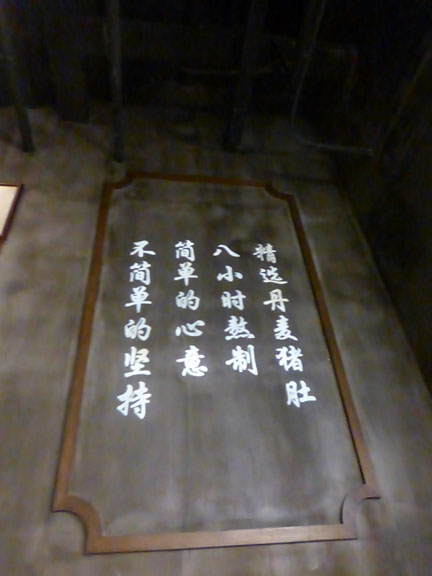 精选丹麦猪肚
八小时熬制
简单的心意
不简单的坚持